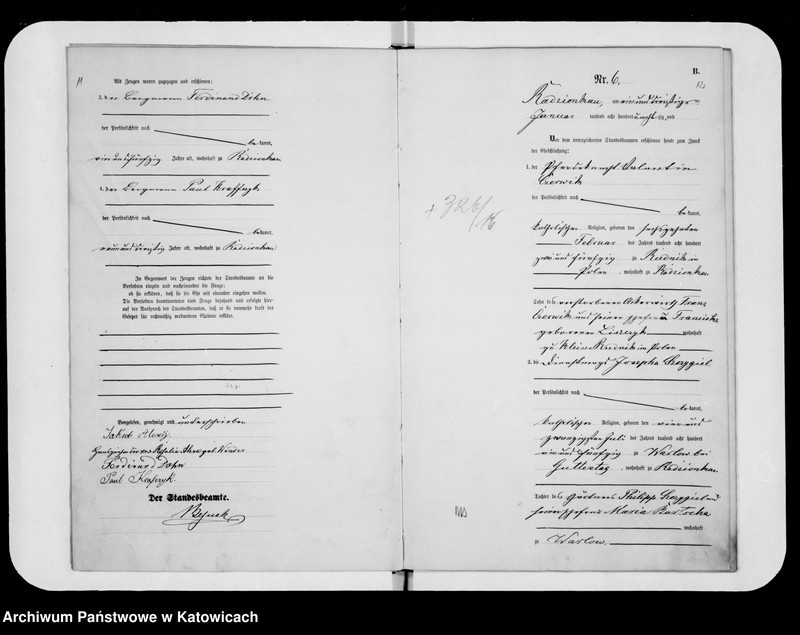 Als Zeugen waren zugezogen und erschienen:
3. der Bergmann Ferdinand Dohn
der Persönlichkeit nach
be kannt,
Jahre alt, wohnhaft zu Radzionkau
4. der Bergmann Paul
der Persönlichkeit nach
be kannt,
Jahre alt, wohnhaft zu Radzionkau
In Gegenwart der Zeugen richtete der Standesbeamte an die
Verlobten einzeln und nacheinander die Frage:
ob sie erklären, daß sie die Ehe mit einander eingehen wollen.
Die Verlobten beantworteten diese Frage bejahend und erfolgte hier-
auf der Ausspruch des Standesbeamten, daß er sie nunmehr kraft des
Gesetzes für rechtmäßig verbundene Eheleute erkläre.
Vorgelesen, genehmigt und unterschrieben
Jakob
Ferdinand Dohn
Paul
Der Standesbeamte.
B.
Nr. 6.
Radzionkau, am
Januar tausend acht hundert achtzig und
Vor dem unterzeichneten Standesbeamten erschienen heute zum Zweck
der Eheschließung:
1. der Pferdeknecht Valentin
Czerwik
der Persönlichkeit nach
be kannt,
katholischer Religion, geboren den sechszehnten
Februar des Jahres tausend acht hundert
zwei und fünfzig zu Rudnik in
Polen, wohnhaft zu Radzionkau
Sohn des verstorbenen Ackerwirth Franz
Czerwik und seiner Ehefrau Franciska
geborenen wohnhaft
zu Klein Rudnik in Polen
2. die Dienstmagd Josepha
der Persönlichkeit nach
be kannt,
katholischer Religion, geboren den vier und
zwanzigsten Juli des Jahres tausend acht hundert
ein und fünfzig zu Warlow bei
Guttentag, wohnhaft zu Radzionkau
Tochter des Gärtners Philipp
seiner Ehefrau Maria
wohnhaft
zu Warlow.
Archiwum Państwowe w Katowicach